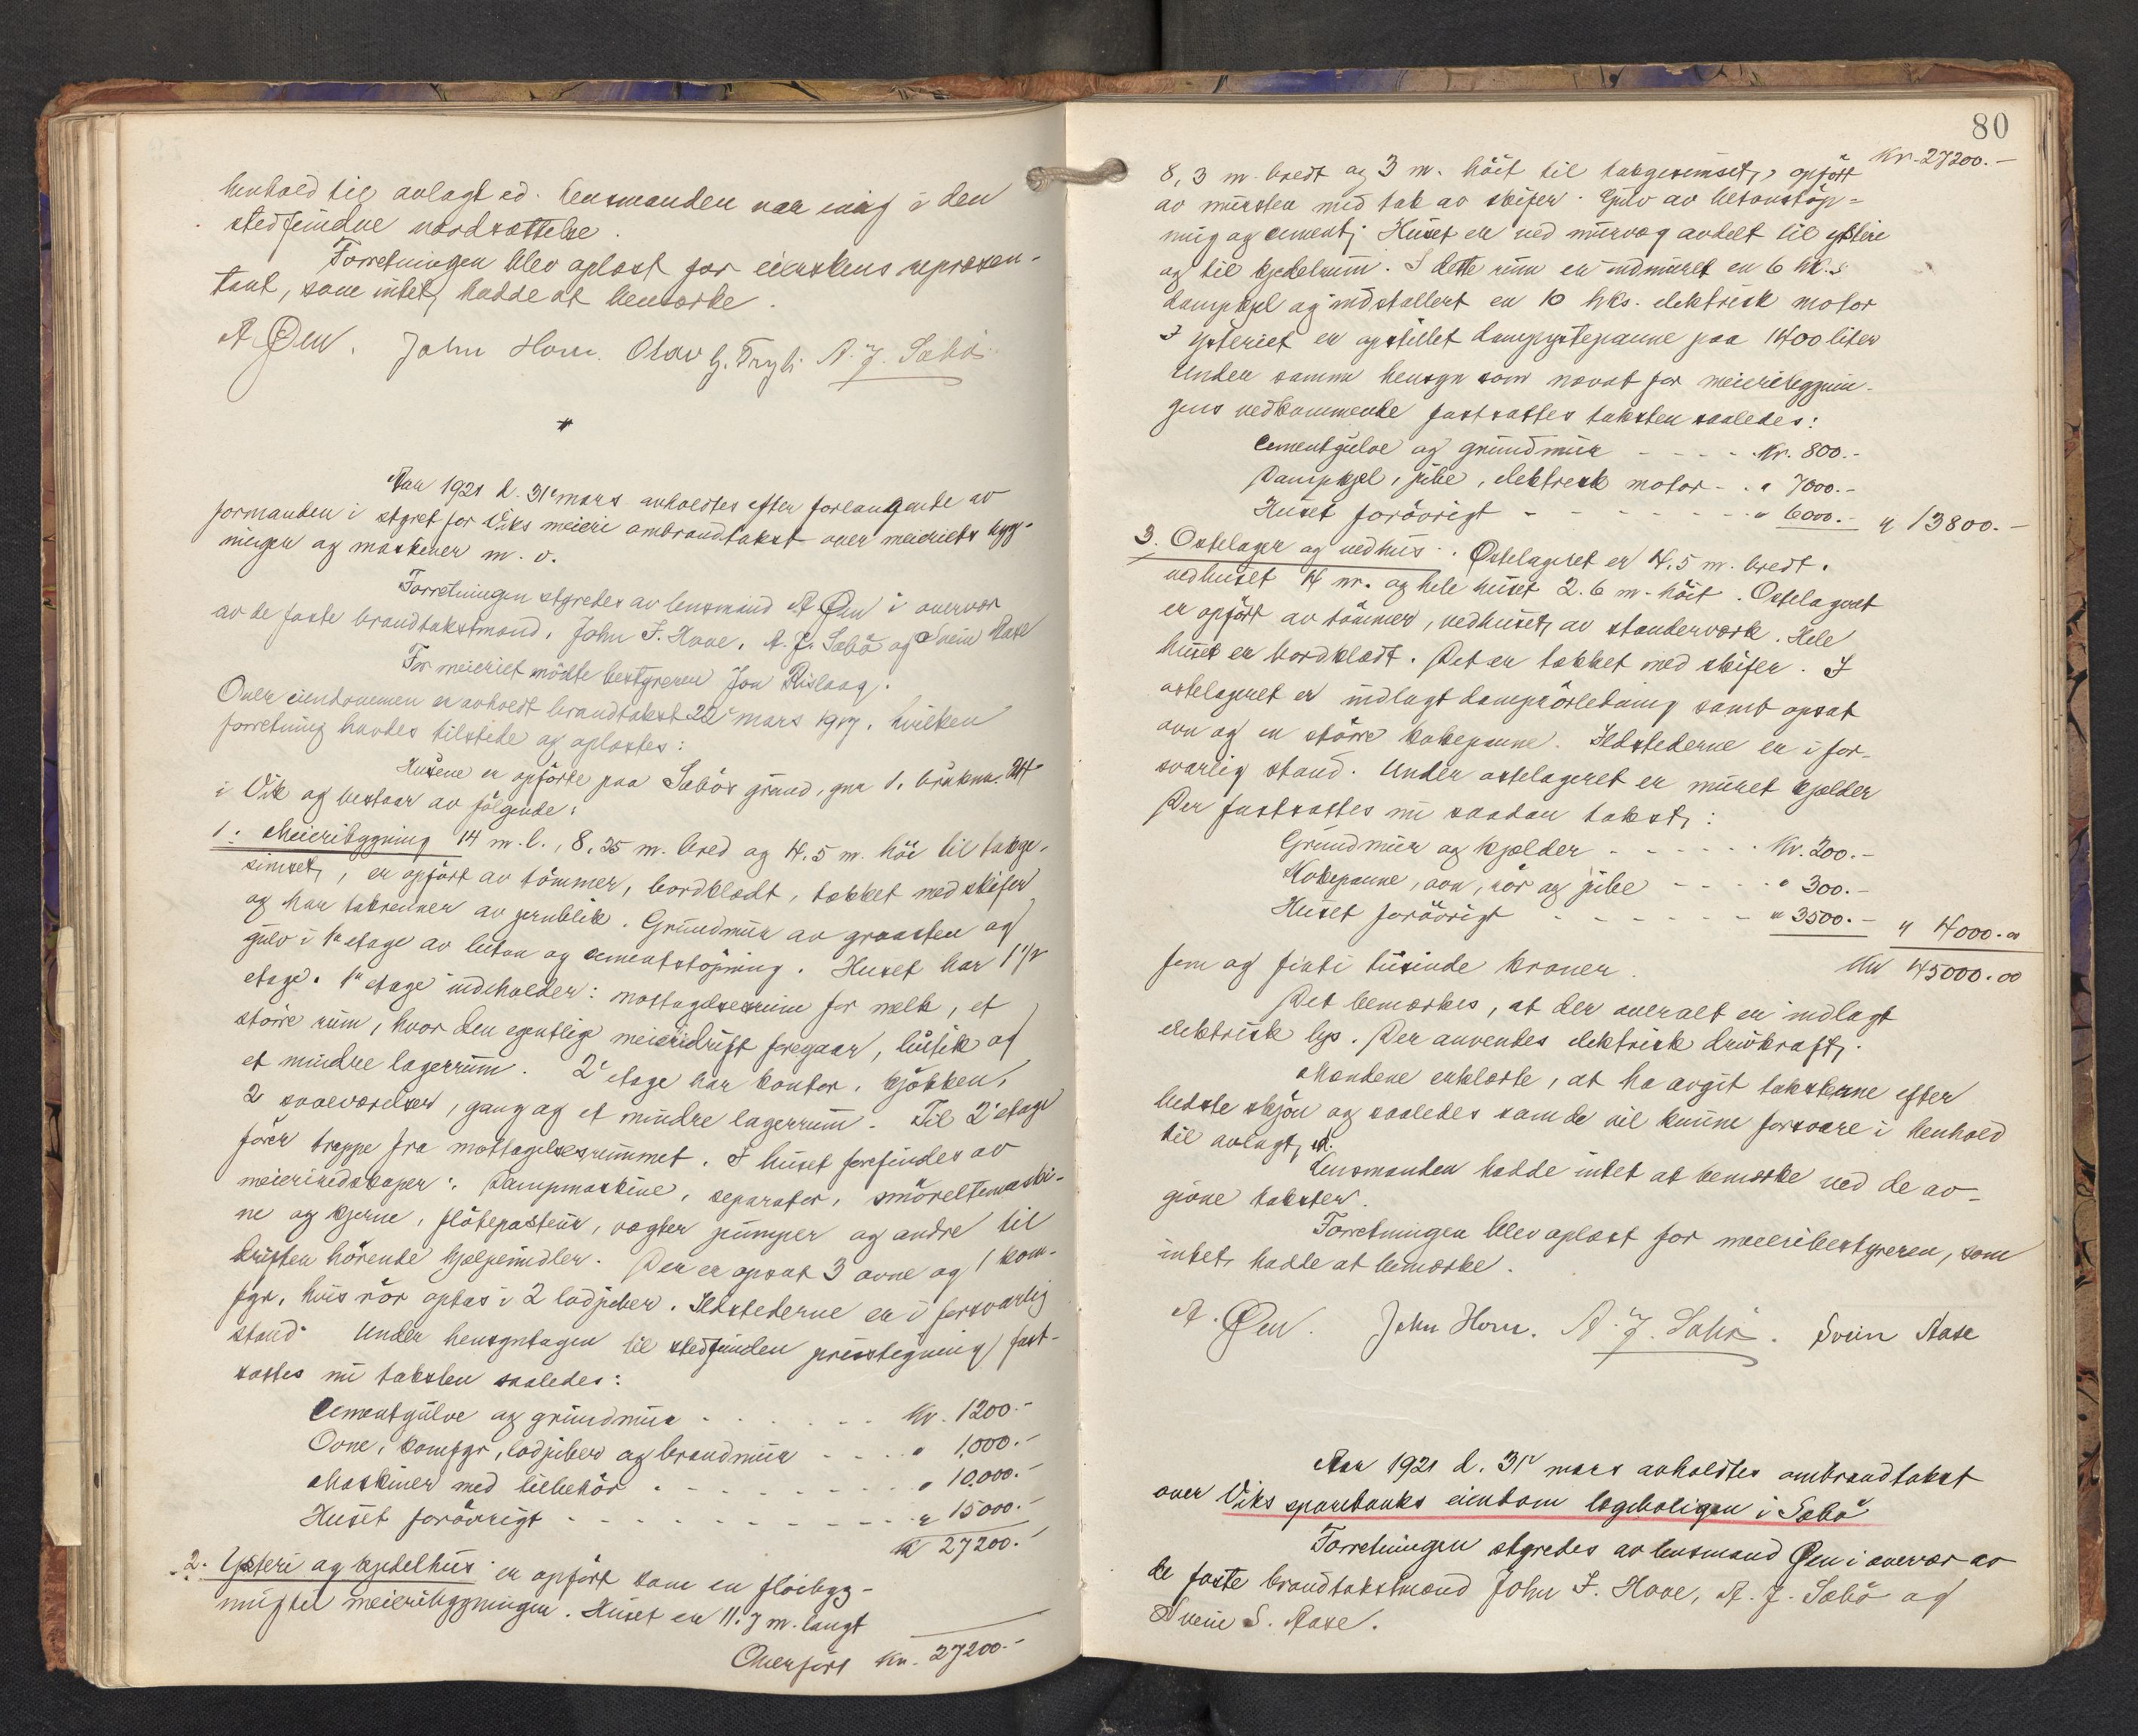 henhold til avlagt ed. Lensmanden var enig i den
stedfundne værdsættelse.
Forretningen blev oplæst for eierskens repræsen-
tant, som intet hadde at bemærke.
A Øen. John Hove. Olav G. Trygli A. J. Sæbö
*
Aar 1921 d. 31' mars avholdtes efter forlangende av
formanden i styret for Viks meieri ombrandtakst over meieriets byg-
ninger og maskiner m. v.
Forretningen styredes av lensmand A. Øen i overvær
av de faste brandtakstmænd, John I. Hove, A. J. Sæbö og Svein Aase
For meieriet mötte bestyreren Jon Risloog.
Over eiendommen er avholdt brandtakst 22' mars 1917, hvilken
forretning havdes tilstede og oplæstes:
Husene er opförte paa Sæbös grund, gnr 1. bruksnr. 24
i Vik og bestaar av fölgende:
1. Meieribygning 14 m. l., 8,35 m. bred og 4.5 m. höi til takge-
simset, er opfört av tömmer, bordklædt, tækket med skifer
og har takrenner av jernblik. Grundmur av graasten og
gulv i 1' etage av beton og cementstöpning. Huset har 1 1/2
etage. 1' etage indeholder: mottagelsesrum for melk, et
större rum, hvor den egentlige meieridrift foregaar, butik og
et mindre lagerrum. 2' etage har kontor, kjökken,
2 soveværelser, gang og et mindre lagerrum. Til 2' etage
förer trappe fra mottagelsesrummet. I huset forefindes av
meieriredskaper: Dampmaskine, separator, smöreltemaski-
ne og kjerne, flötepasteur, vægter pumper og andre til
driften hörende hjælpemidler. Der er opsat 3 ovne og 1 kom-
fyr, hvis rör optas i 2 lodpiber. Ildstederne er i forsvarlig
stand. Under hensyntagen til stedfunden prisstigning fast-
sattes nu taksten saaledes:
Cementgulve og grundmur - - - - Kr. 1200.-
Ovne, komfyr, lodpiber og brandmur - - - " 1.000.-
Maskiner med tilbehör - - - - - " 10.000.-
Huset forövrigt - - - - - - - " 15000.-
Kr 27200.-
2. Ysteri og kjedelhus er opfört som en flöibyg-
ning til meieribygningen. Huset er 11.7 m. langt
Overfört Kr. 27200.-
80
Kr. 27200.-
8,3 m. bredt og 3 m. höit til takgesimset, opfört
av mursten med tak av skifer. Gulv av betonstöp-
ning og cement; Huset er ved murvæg avdelt til ysteri
og til kjedelrum. I dette rum er indmuret en 6 hk.s
dampkjel og indstallert en 10 hks. elektrisk motor
I ysteriet er opstillet dampystepanne paa 1400 liter
Under samme hensyn som nævnt for meieribygnin-
gens vedkommende fastsattes taksten saaledes:
Cementgulve og grundmur - - - - Kr. 800.-
Dampkjel, pibe, elektrisk motor - - " 7000.-
Huset forövrigt - - - - - - " 6000.- " 13800.-
3. Ostelager og vedhus. Ostelageret er 4,5 m. bredt.
vedhuset 4 m. og hele huset 2.6 m. höit. Ostelageret
er opfört av tömmer, vedhuset av stenderværk. Hele
huset er bordklædt. Det er tækket med skifer. I
ostelageret er indlagt damprörledning samt opsat
ovn og en större kokepanne. Ildstederne er i for-
svarlig stand. Under ostelageret er muret kjælder
Der fastsattes nu saadan takst:
Grundmur og kjælder - - - - - Kr. 200.-
Kokepanne, ovn, rör og pibe - - - " 300.-
Huset forövrigt - - - - - - " 3500.- " 4000.00
Kr 45000.00
fem og firti tusinde kroner.
Det bemærkes, at der overalt er indlagt
elektrisk lys. Der anvendes elektrisk drivkraft.
Mændene erklærte, at ha avgit taksterne efter
bedste skjön og saaledes som de vil kunne forsvare i henhold
til avlagt ed.
Lensmanden hadde intet at bemærke ved de av-
givne takster.
Forretningen blev oplæst for meieribestyreren, som
intet hadde at bemærke.
A. Øen. John Hove. A. J. Sæbö. Svein Aase
Aar 1921 d. 31' mars avholdtes ombrandtakst
over Viks sparebanks eiendom lægeboligen i Sæbö
Forretningen styredes av lensmand Øen i overvær av
de faste brandtakstmænd John I. Hove, A. J. Sæbö og
Svein S. Aase.